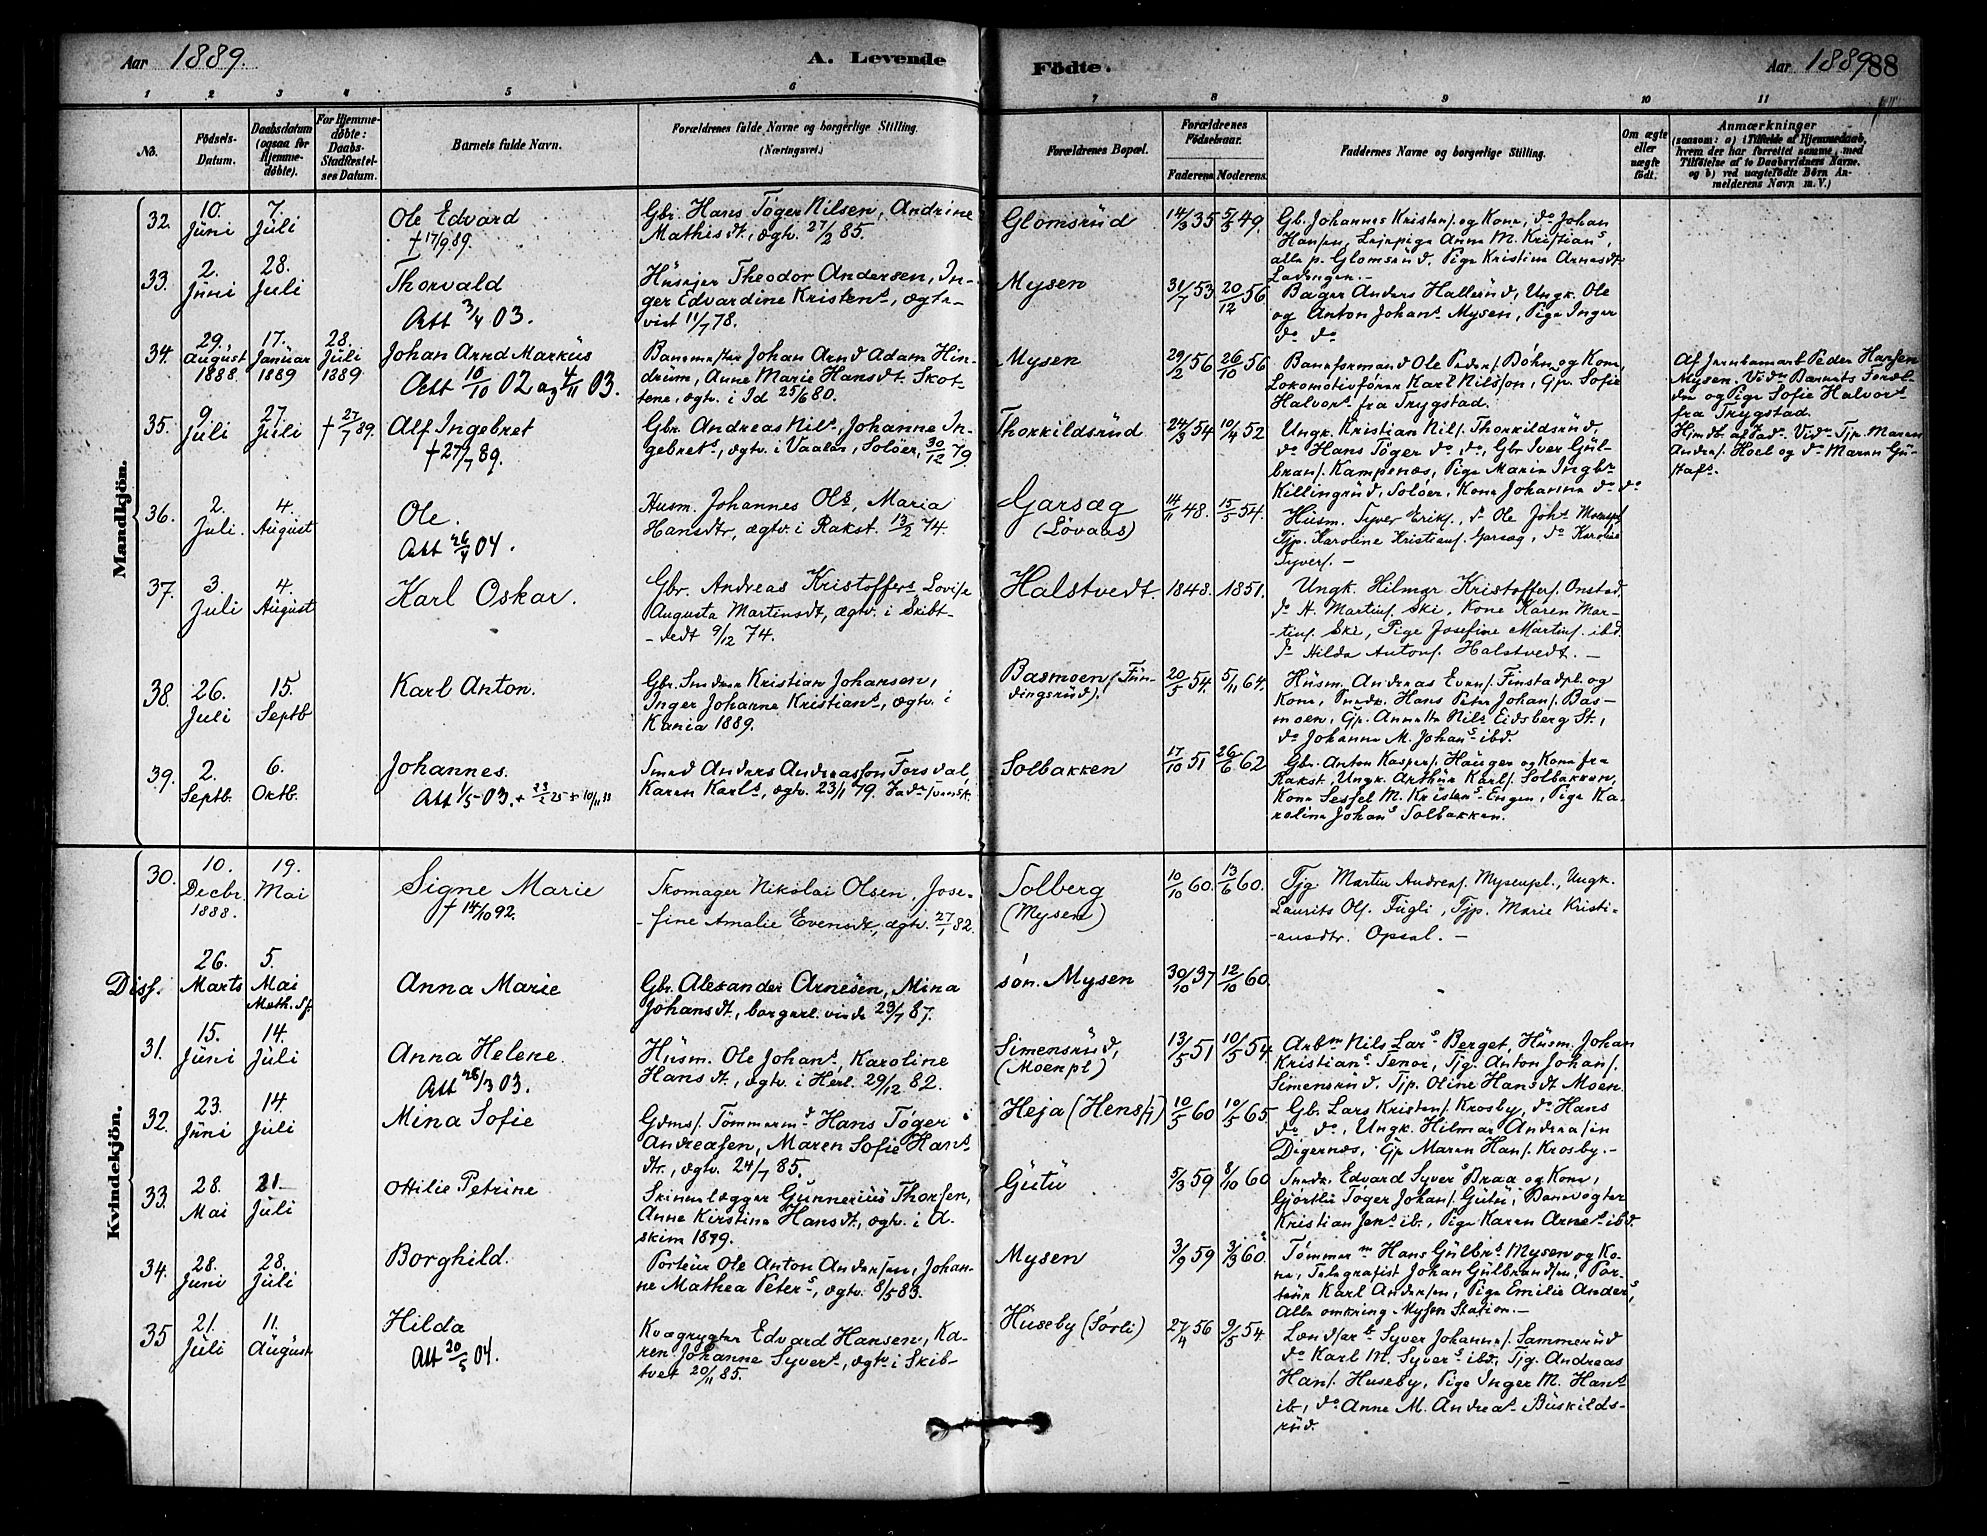 Aar 1889. A. Levende Födte. Aar 1889 88
1 2 3 4 5 6 7 8 9 10 11
No.
Födsels-Datum.
Daabsdatum (ogsaa for Hjemme-döbte).
For Hjemme-döbte: Daabs-Stadfestel-ses Datum.
Barnets fulde Navn.
Forældrenes fulde Navne og borgerlige Stilling. (Næringsvei.)
Forældrenes Bopæl.
Forældrenes Födselsaar.
Faderens. Moderens.
Faddernes Navne og borgerlige Stilling.
Om ægte eller uægte födt.
Anmærkninger
(saasom: a) i Tilfælde af Hjemmedaab,
hvem der har forrettet samme, med
Tilföielse af to Daabsvidners Navne,
og b) ved uægtefödte Börn An-
melderens Navn m. V.)
Mandkjön.
32. 10. Juni 7. Juli
Ole Edvard
† 17/9 89.
Gbr. Hans Töger Nilsen, Andrine
Mathisdt., ægtv. 27/2 85.
Glomsrüd 14/3 35 5/5 49.
Gb. Johannes Kristens. og Kone, do Johan
Hansen, Leiepige Anna M. Kristians,
alle p. Glomsrüd. Pige Kristine Arnesdt.
33. 2. Juni 28. Juli
Thorvald
Att 3/4 03.
Husejer Theodor Andersen, In-
ger Edvardine Kristens, ægte-
vist 11/7 78.
Mysen 31/7 53 20/12 56
Bager Anders Hallerüd, Ungk. Ole
og Anton Johans Mysen, Pige Inger
do do
34. 29. August 1888. 17. Januar 1889 28. Juli 1889
Johan Arnd Markus
Att 10/10 02 og 4/11 03.
Banemester Johan Arnd Adam Hin-
drum, Anne Marie Hansdt. Skot-
tene, ægtv. i Id 25/6 80.
Mysen 29/2 56 26/10 56
Baneformand Ole Peders. Bøhn og Kone,
Lokomotivfører Karl Nilsson, Gp. Sofie
Halvors fra Trygstad.
Af Jernbanearb. Peder Hansen
Mysen. Vidn. Barnets Foræl-
dre og Pige Sofie Halvors
fra Trygstad.
35. 9 Juli 27. Juli † 27/7 89.
Alf Ingebret
† 27/7 89.
Gbr. Andreas Nils, Johanne In-
gebrets, ægtv. i Vaaler, Soløer, 30/12 79.
Thorkildsrüd 24/3 54 10/4 52
Ungk. Kristian Nils. Thorkildsrüd,
do Hans Töger do do, Gbr Iver Gül-
brans. Kampenæs, Pige Maria Ingbr.
Killingrüd, Soløer, Kone Johanna do do
Hjmdb. af Jord. Vidn. Tjp. Maren
Andrs. Hoel og do Maren Gü-
stafs.
36. 2. Juli. 4. August
Ole.
Att 26/4 04.
Husm. Johannes Ols, Maria
Hansdtr, ægtv. i Rakst. 13/2 74.
Garsæg
(Lövaas)
14/11 48. 15/5 54.
Husm. Syver Eriks., do Ole Johs Moenspl
Tjp. Karoline Kristians. Garsæg, do Karoline
Syvers. —
37. 3. Juli 4. August
Karl Oskar.
Gbr. Andreas Kristoffers Lovise
Augusta Martinsdt, ægtv. i Skibt-
-vedt 9/12 74.
Halstvedt. 1848. 1851.
Ungk. Hilmar Kristoffers. Onstad,
do A. Martins. Ski, Kone Karen Mar-
-tins. Ski, Pige Josefine Martins. ibd.
do Hilda Antons. Halstvedt. —
38. 26. Juli 15. Septb
Karl Anton.
Gbr. Snedker Kristian Johansen,
Inger Johanne Kristians, ægtv. i
Kania 1889.
Basmoen (Fün-
dingsrüd). 20/5 54. 5/11 64.
Husm. Andreas Evens. Finstadpl. og
Kone, Snedk. Hans Peter Johans. Bas-
moen, Gp. Annette Nils Eidsberg St.,
do Johanne M. Johans ibd.
39. 2. Septb. 6. Oktb.
Johannes.
Att 1/5 03.
Smed Anders Andreassen Forsdal,
Karen Karls, ægtv. 23/1 79.
Solbakken 17/10 51 26/6 62
Gbr. Anton Kaspers. Haugen og Kone fra
Rakst. Ungk. Arthur Karls. Solbakken,
Kone Sessel M. Kristens Engen, Pige Ka-
roline Johans Solbakken.
Kvindekjön.
30. 10. Decbr. 1888. 19. Mai
Signe Marie
† 14/10 92.
Skomager Nikolai Olsen, Jose-
-fine Amalie Evensdt, ægtv. 27/1 82.
Solberg
(Mysen)
10/10 60. 13/6 60.
Tjg. Martin Andreas. Mysenpl., Ungk.
Laurits Ols. Fügli, Tjp. Marie Kristi-
-ansdtr. Opsal. —
Diss. 26. Marts 5. Mai Meth. Sf.
Anna Marie
Gbr. Alexander Arnesen, Mina
Johansdt., borgerl. viede 29/7 87.
søn. Mysen 30/10 37 12/10 60.
31. 15. Juni 14. Juli
Anna Helene.
Att 26/3 03.
Husm. Ole Johans, Karoline
Hansdt., ægtv. i Herl. 29/12 82.
Simensrüd,
(Moenpl)
13/5 51 10/5 54
Arbm Nils Lars Berget, Husm. Johan
Kristians Tenor, Tjg. Anton Johans.
Simensrüd. Tjp. Oline Hansdt. Moen.
32. 23. Juni 14. Juli
Mina Sofie
Gdms. Tømmerm. Hans Töger
Andreasen, Maren Sofie Hans
dtr., ægtv. 24/7 85.
Heja (Hensfj) 10/5 60 10/5 65
Gb. Lars Kristens. Krosby, do Hans
do do, Ungk. Hilmar Andreassen
Digernæs, Gp Maren Hans. Krosby.—
33. 28. Mai 21 Juli
Ottilie Petrine
Skinnelægger Gunnerius Thorsen,
Anne Kirstine Hansdt., ægtv. i A-
skim 1879.
Gütü 5/3 59 8/10 60
Snedk. Edvard Syvers Braa og Kone,
Gjørtler Töger Johans. Gütü, Banevogter
Kristian Jens ib., Pige Karen Arnes ibd.
34. 28. Juni 28. Juli
Borghild.
Portør Ole Anton Andersen, Johan-
ne Mathea Peters, ægtv. 8/5 83.
Mysen 3/9 59 3/3 60.
Tømmerm Hans Gülbrs. Mysen og Ko-
ne, Telegrafist Johan Gülbrandsen, Por-
tør Karl Andersen, Pige Emilie Anders,
Alle omkring Mysen Station.—
35 21. Juli 11. August
Hilda
Att 20/5 04.
Kvægrygter Edvard Hansen, Ka-
ren Johanne Syvers, ægtv. i Skib-
tvet 20/11 85.
Huseby (Sørli) 27/4 56 9/5 54.
Syver Johanns. Sammerüd
do Karl M. Syvers ibd. Tjg. Andreas
Hans. Huseby, Pige Inger M. Hans
ib., do Anne M. Andreas Büskilds-
rüd.